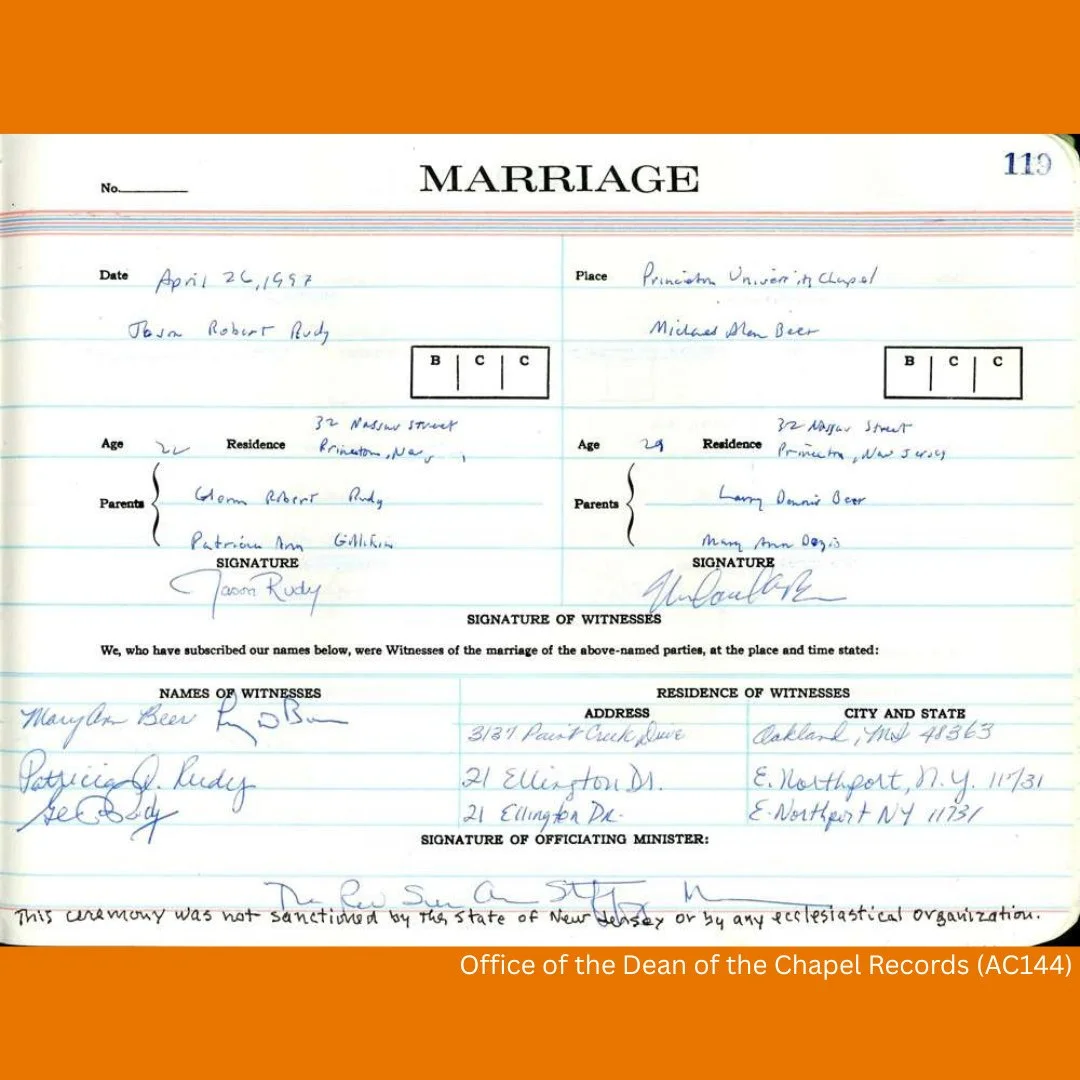 119
No.
MARRIAGE
Date April 26, 1997 Place Princeton University Chapel
Jason Robert Rudy Michael Alan Beer
B C C B C C
32 Nassau Street 32 Nassau Street
Age 22 Residence Princeton, New Age 29 Residence Princeton, New Jersey
Parents Glenn Robert Rudy Parents Larry Dennis Beer
Patricia Ann Mary Ann
SIGNATURE SIGNATURE
Jason Rudy
SIGNATURE OF WITNESSES
We, who have subscribed our names below, were Witnesses of the marriage of the above-named parties, at the place and time stated:
NAMES OF WITNESSES RESIDENCE OF WITNESSES
ADDRESS CITY AND STATE
Mary Ann Beer 3137 Paint Creek Drive Oakland, MI 48363
Patricia A. Rudy 21 Ellington Dr. E. Northport, N.Y. 11731
Rudy 21 Ellington Dr. E. Northport NY 11731
SIGNATURE OF OFFICIATING MINISTER:
The Rev Sue Ann
This ceremony was not sanctioned by the State of New Jersey or by any ecclesiastical organization.
Office of the Dean of the Chapel Records (AC144)